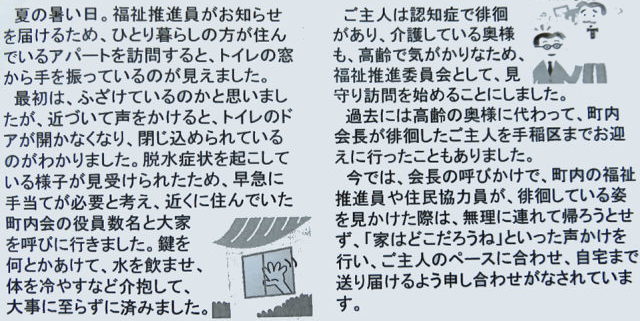 夏の暑い日。福祉推進員がお知らせ
を届けるため、ひとり暮らしの方が住ん
でいるアパートを訪問すると、トイレの窓
から手を振っているのが見えました。
最初は、ふざけているのかと思いまし
たが、近づいて声をかけると、トイレのド
アが開かなくなり、閉じ込められている
のがわかりました。脱水症状を起こして
いる様子が見受けられたため、早急に
手当てが必要と考え、近くに住んでいた
町内会の役員数名と大家
を呼びに行きました。鍵を
何とかあけて、水を飲ませ、
体を冷やすなど介抱して、
大事に至らずに済みました。
ご主人は認知症で徘徊
があり、介護している奥様
も、高齢で気がかりなため、
福祉推進委員会として、見
守り訪問を始めることにしました。
過去には高齢の奥様に代わって、町内
会長が徘徊したご主人を手稲区までお迎
えに行ったこともありました。
今では、会長の呼びかけで、町内の福祉
推進員や住民協力員が、徘徊している姿
を見かけた際は、無理に連れて帰ろうとせ
ず、「家はどこだろうね」といった声かけを
行い、ご主人のペースに合わせ、自宅まで
送り届けるよう申し合わせがなされていま
す。